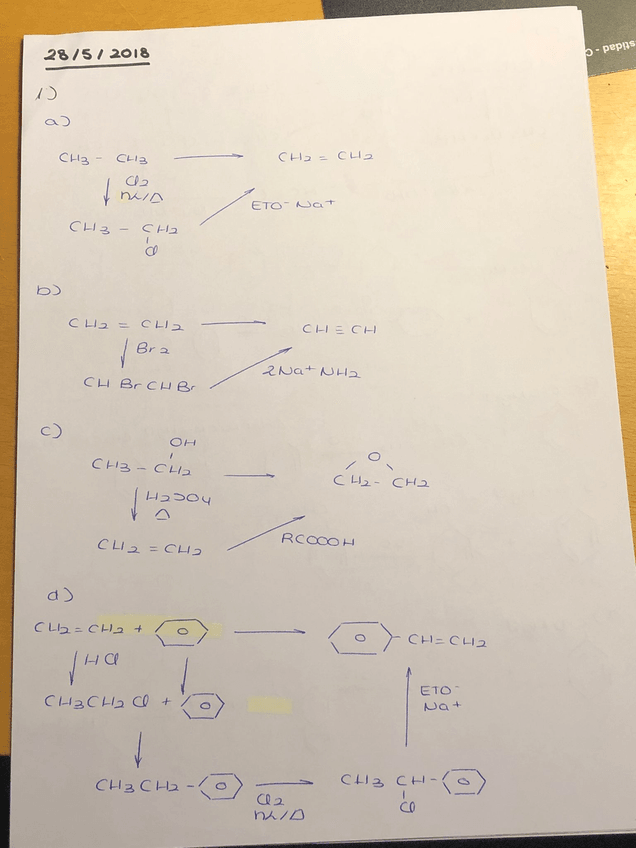 28/5/2018
1)
a)
CH3 - CH3 → CH2 = CH2
↓ Cl2
hν/Δ
ETO⁻ Na⁺
CH3 - CH2
Cl
b)
CH2 = CH2 → CH ≡ CH
↓ Br2
2Na⁺ NH2
CH Br CH Br
c)
OH
O
CH3 - CH2 → CH2 - CH2
↓ H2SO4
Δ
RCOOOH
CH2 = CH2
d)
CH2 = CH2 + → - CH = CH2
↓ H Cl
ETO⁻
Na⁺
CH3CH2 Cl +
CH3 CH2 - → CH3 CH -
Cl2
hν/Δ
Cl